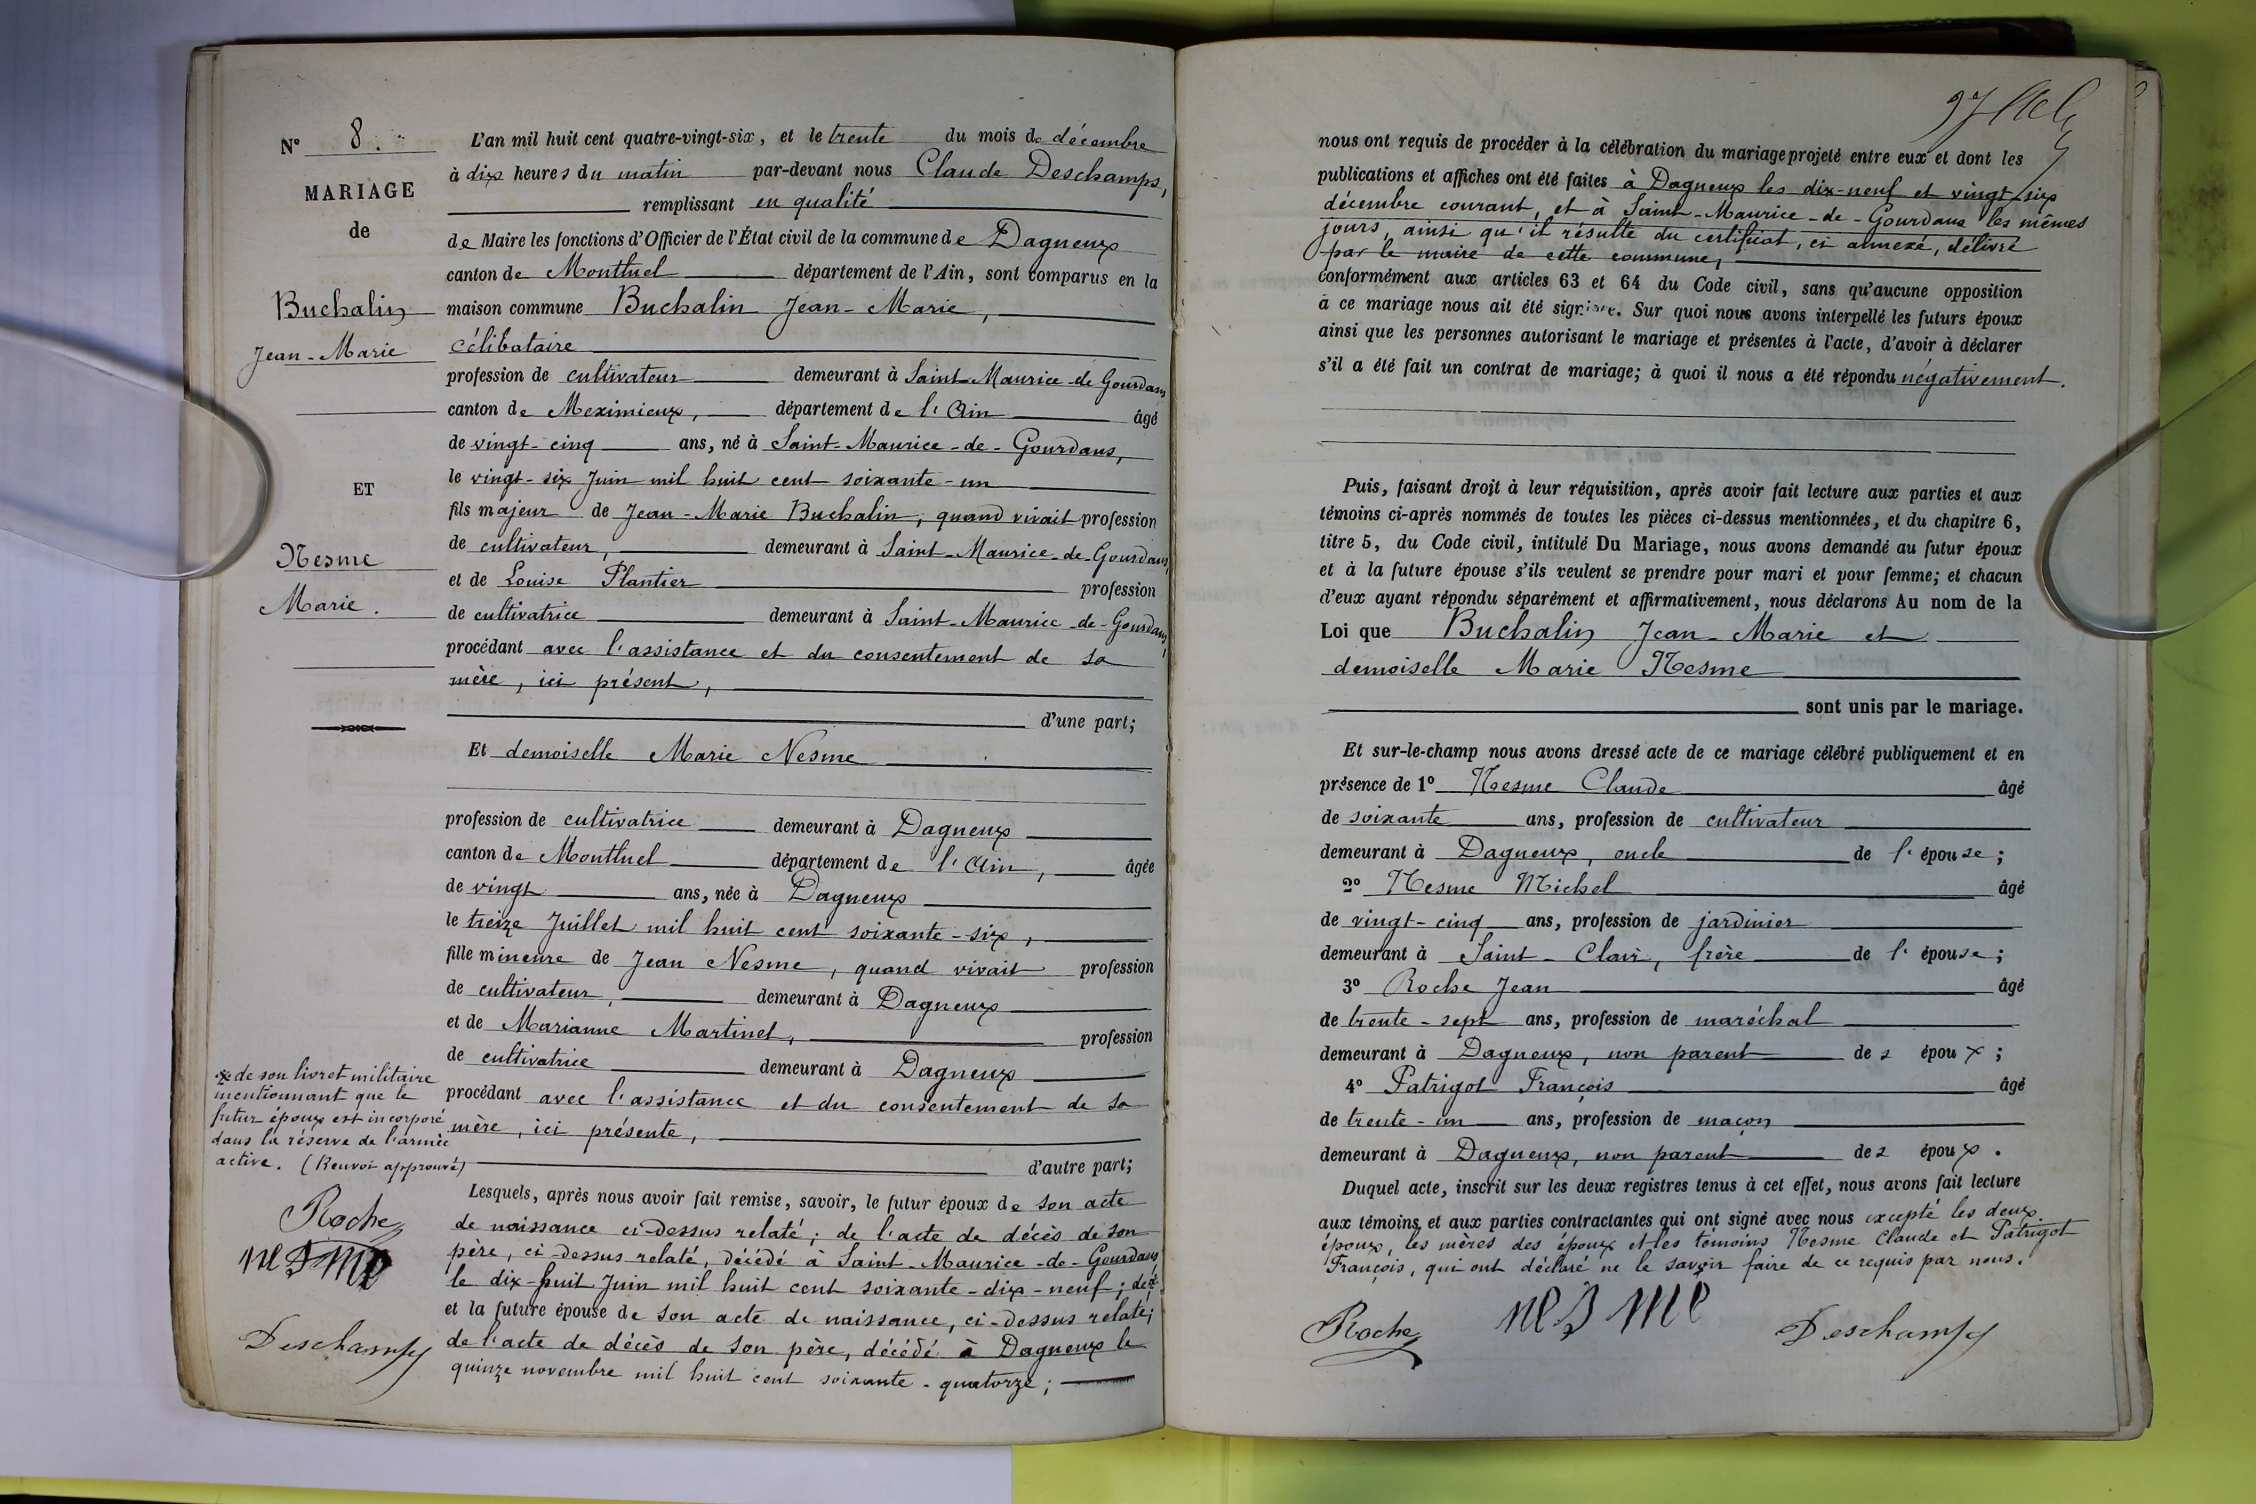 N° 8.
MARIAGE
de
Buchalin
Jean-Marie
ET
Nesme
Marie.
L'an mil huit cent quatre-vingt-six, et le trente du mois de décembre
à dix heures du matin par-devant nous Claude Deschamps,
remplissant en qualité
de Maire les fonctions d'Officier de l'État civil de la commune de Dagneux
canton de Montluel département de l'Ain, sont comparus en la
maison commune Buchalin Jean-Marie,
célibataire
profession de cultivateur demeurant à Saint-Maurice-de-Gourdans
canton de Meximieux, département de l'Ain âgé
de vingt-cinq ans, né à Saint-Maurice-de-Gourdans,
le vingt-six Juin mil huit cent soixante-un
fils majeur de Jean-Marie Buchalin, quand vivait profession
de cultivateur, demeurant à Saint-Maurice-de-Gourdans,
et de Louise Plantier profession
de cultivatrice demeurant à Saint-Maurice-de-Gourdans,
procédant avec l'assistance et du consentement de sa
mère, ici présent,
d'une part;
Et demoiselle Marie Nesme
profession de cultivatrice demeurant à Dagneux
canton de Montluel département de l'Ain, âgée
de vingt ans, née à Dagneux
le treize Juillet mil huit cent soixante-six,
fille mineure de Jean Nesme, quand vivait profession
de cultivateur, demeurant à Dagneux
et de Marianne Martinet, profession
de cultivatrice demeurant à Dagneux
procédant avec l'assistance et du consentement de sa
mère, ici présente,
d'autre part;
Lesquels, après nous avoir fait remise, savoir, le futur époux de son acte
de naissance ci-dessus relaté; de l'acte de décès de son
père, ci-dessus relaté, décédé à Saint-Maurice-de-Gourdans
le dix-huit Juin mil huit cent soixante-dix-neuf; de
et la future épouse de son acte de naissance, ci-dessus relaté;
de l'acte de décès de son père, décédé à Dagneux le
quinze novembre mil huit cent soixante-quatorze;
de son livret militaire
mentionnant que le
futur époux est incorporé
dans la réserve de l'armée
active. (Renvoi approuvé)
Roche
nesme
Deschamps
nous ont requis de procéder à la célébration du mariage projeté entre eux et dont les
publications et affiches ont été faites à Dagneux les dix-neuf et vingt-six
décembre courant, et à Saint-Maurice-de-Gourdans les mêmes
jours, ainsi qu'il résulte du certificat, ci annexé, délivré
par le maire de cette commune,
conformément aux articles 63 et 64 du Code civil, sans qu'aucune opposition
à ce mariage nous ait été signifiée. Sur quoi nous avons interpellé les futurs époux
ainsi que les personnes autorisant le mariage et présentes à l'acte, d'avoir à déclarer
s'il a été fait un contrat de mariage; à quoi il nous a été répondu négativement.
Puis, faisant droit à leur réquisition, après avoir fait lecture aux parties et aux
témoins ci-après nommés de toutes les pièces ci-dessus mentionnées, et du chapitre 6,
titre 5, du Code civil, intitulé Du Mariage, nous avons demandé au futur époux
et à la future épouse s'ils veulent se prendre pour mari et pour femme; et chacun
d'eux ayant répondu séparément et affirmativement, nous déclarons Au nom de la
Loi que Buchalin Jean-Marie et
demoiselle Marie Nesme
sont unis par le mariage.
Et sur-le-champ nous avons dressé acte de ce mariage célébré publiquement et en
présence de 1° Nesme Claude âgé
de soixante ans, profession de cultivateur
demeurant à Dagneux, oncle de l'épouse;
2° Nesme Michel âgé
de vingt-cinq ans, profession de jardinier
demeurant à Saint-Clair, frère de l'épouse;
3° Roche Jean âgé
de trente-sept ans, profession de maréchal
demeurant à Dagneux, non parent des époux;
4° Patrigot François âgé
de trente-un ans, profession de maçon
demeurant à Dagneux, non parent des époux.
Duquel acte, inscrit sur les deux registres tenus à cet effet, nous avons fait lecture
aux témoins et aux parties contractantes qui ont signé avec nous excepté les deux
époux, les mères des époux et les témoins Nesme Claude et Patrigot
François, qui ont déclaré ne le savoir faire de ce requis par nous.
Roche
nesme
Deschamps